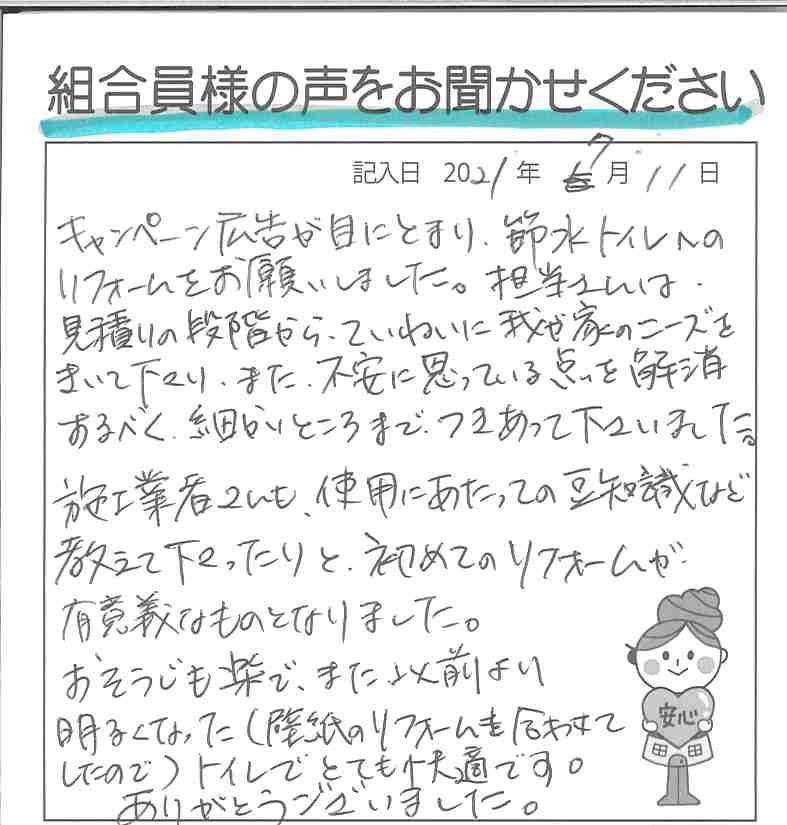 組合員様の声をお聞かせください
記入日 2021年 7月11日
キャンペーン広告が目にとまり、節水トイレへの
リフォームをお願いしました。担当さんは、
見積りの段階から、ていねいに我が家のニーズを
きいて下さり、また、不安に思っている点を解消
するべく、細かいところまで、つきあって下さいました。
施工業者さんも、使用にあたっての豆知識など
教えて下さったりと、初めてのリフォームが
有意義なものとなりました。
おそうじも楽で、また以前より
明るくなった(壁紙のリフォームも合わせて
したので)トイレでとても快適です。
ありがとうございました。
安心